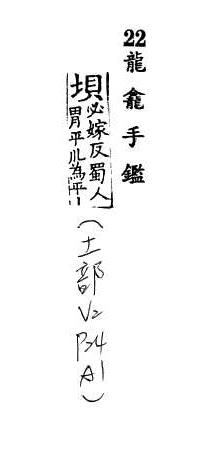 22龍龕手鑑
垻必嫁反蜀人
謂平川為平丨
(土部 V2 P24 A1)